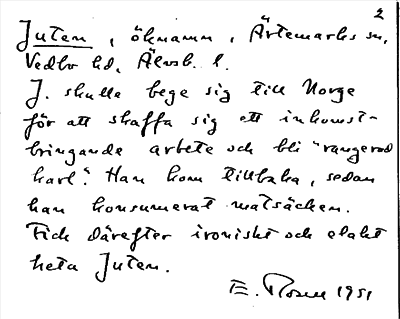 2
Juten, öknamn, Ärtemarks sn,
Vedbo hd, Älvsb. l.
J. skulle bege sig till Norge
för att skaffa sig ett inkomst-
bringande arbete och bli "rangerad
karl". Han kom tillbaka, sedan
han konsumerat matsäcken.
Fick därefter ironiskt och elakt
heta Juten.
E. 1951